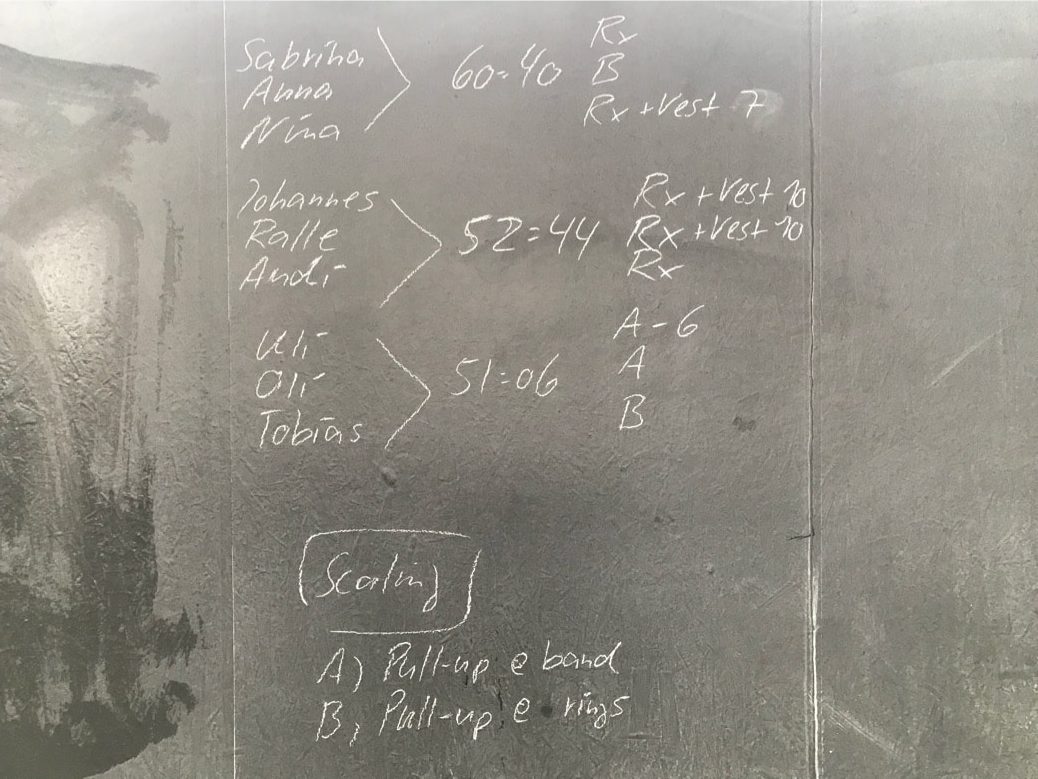 Sabrina
Anna
Nina
60:40
Rx
B
Rx + Vest 7
Johannes
Ralle
Andi
52:44
Rx + Vest 10
Rx + Vest 10
Rx
Uli
Oli
Tobias
51:06
A - 6
A
B
Scaling
A) Pull-up @ band
B) Pull-up @ rings